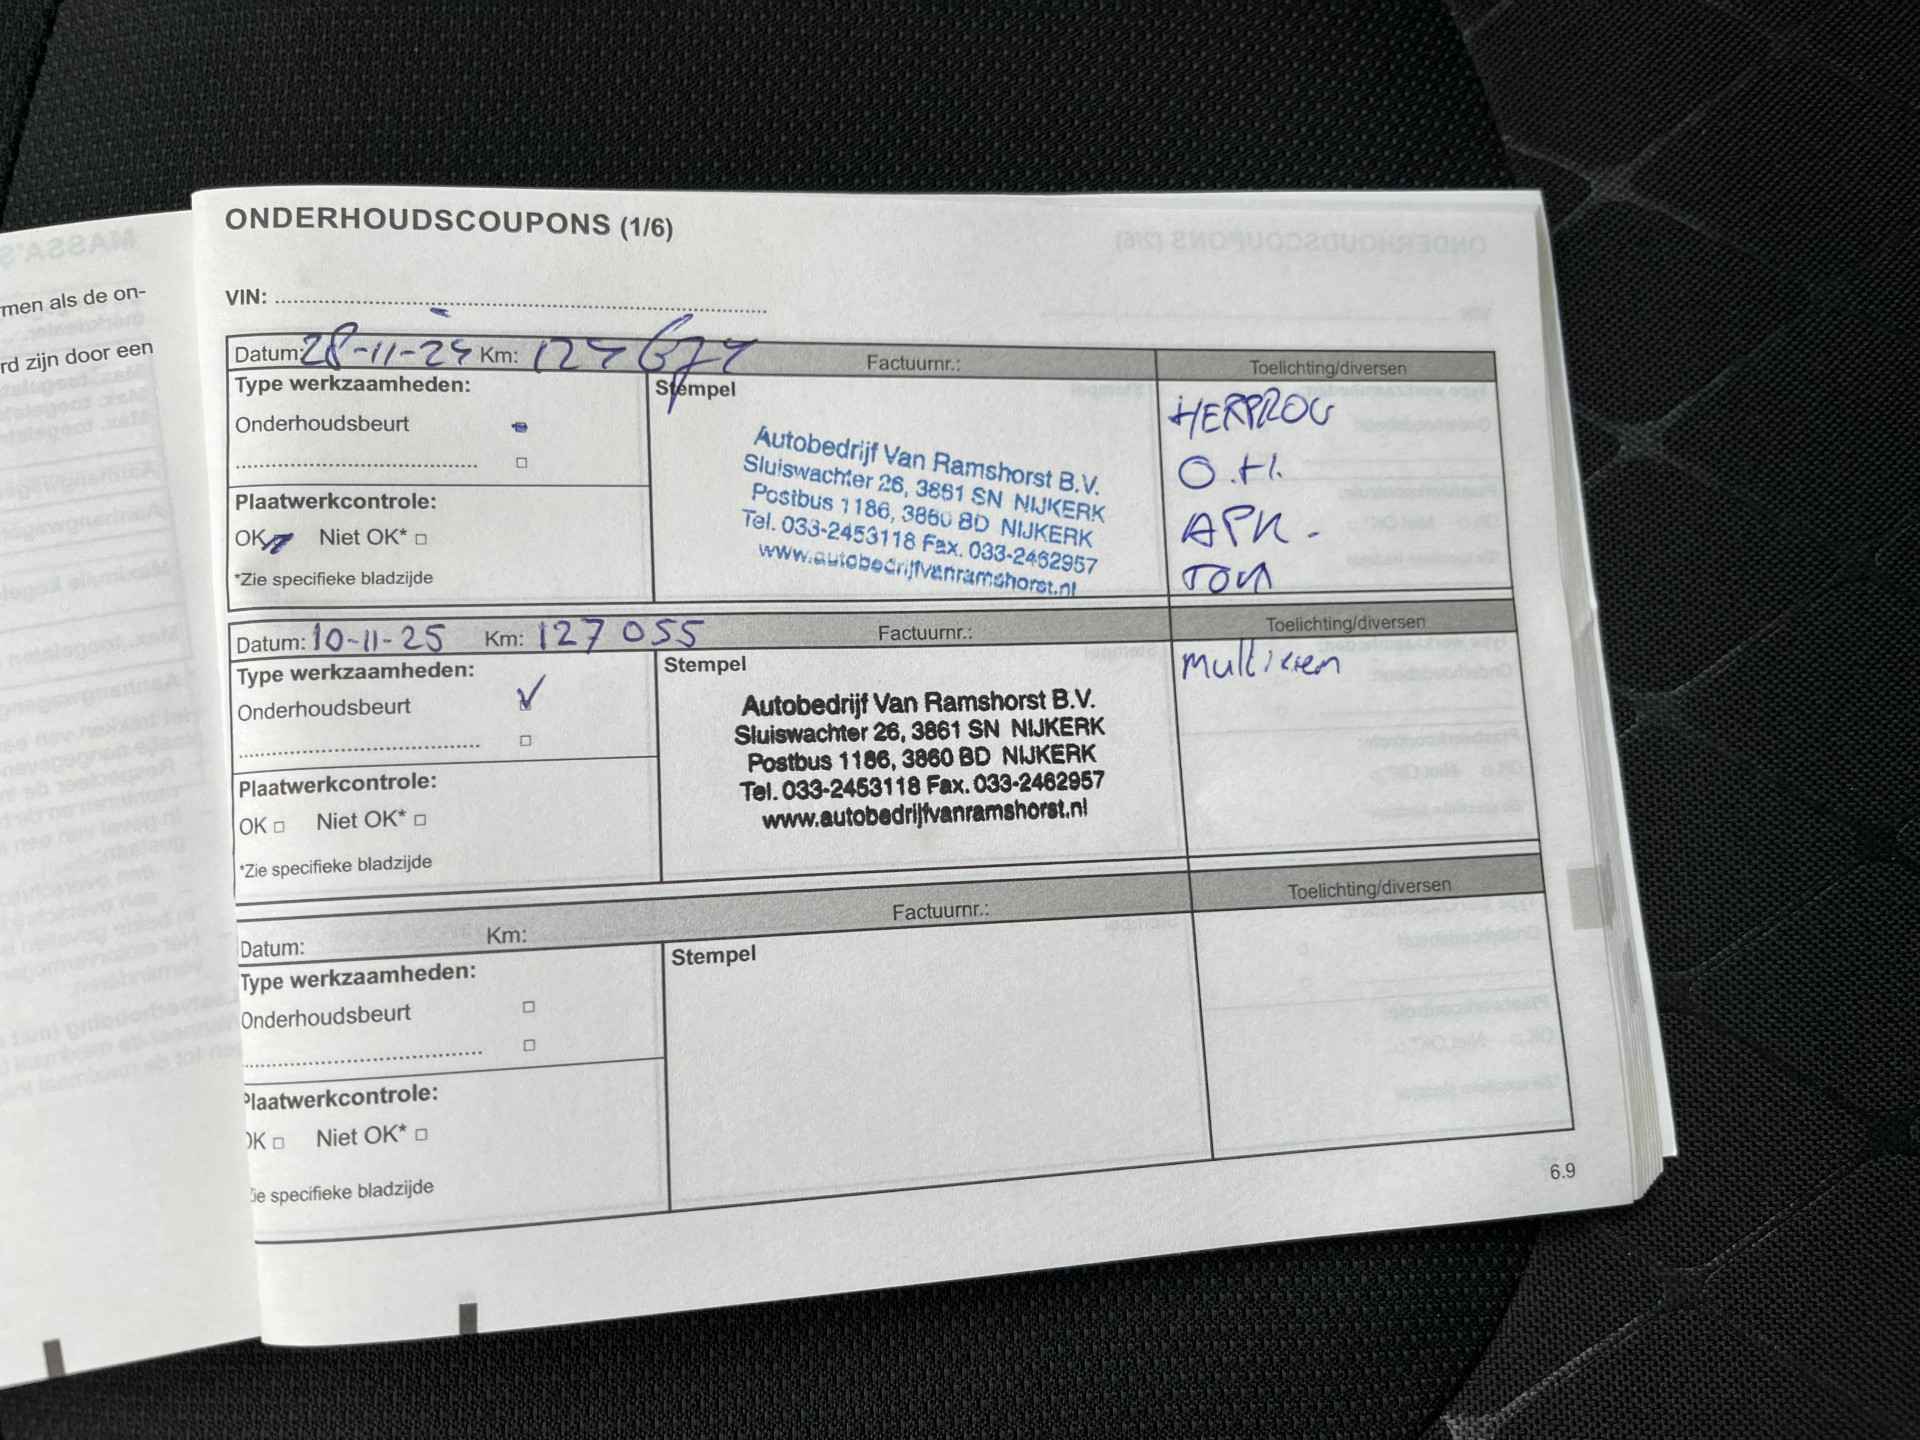 men als de on-
rd zijn door een
ONDERHOUDSCOUPONS (1/6)
VIN:
Datum: 28-11-24 Km: 124 674 Factuurnr.: Toelichting/diversen
Type werkzaamheden:
Onderhoudsbeurt
Plaatwerkcontrole:
OK Niet OK*
*Zie specifieke bladzijde
Stempel
Autobedrijf Van Ramshorst B.V.
Sluiswachter 26, 3861 SN NIJKERK
Postbus 1186, 3860 BD NIJKERK
Tel. 033-2453118 Fax. 033-2462957
www.autobedrijfvanramshorst.nl
HERPROG
O.H.
APK -
Datum: 10-11-25 Km: 127 055 Factuurnr.: Toelichting/diversen
Type werkzaamheden:
Onderhoudsbeurt
Plaatwerkcontrole:
OK Niet OK*
*Zie specifieke bladzijde
Stempel
Autobedrijf Van Ramshorst B.V.
Sluiswachter 26, 3861 SN NIJKERK
Postbus 1186, 3860 BD NIJKERK
Tel. 033-2453118 Fax. 033-2462957
www.autobedrijfvanramshorst.nl
multiriem
Datum: Km: Factuurnr.: Toelichting/diversen
Type werkzaamheden:
Onderhoudsbeurt
Plaatwerkcontrole:
OK Niet OK*
Zie specifieke bladzijde
Stempel
6.9